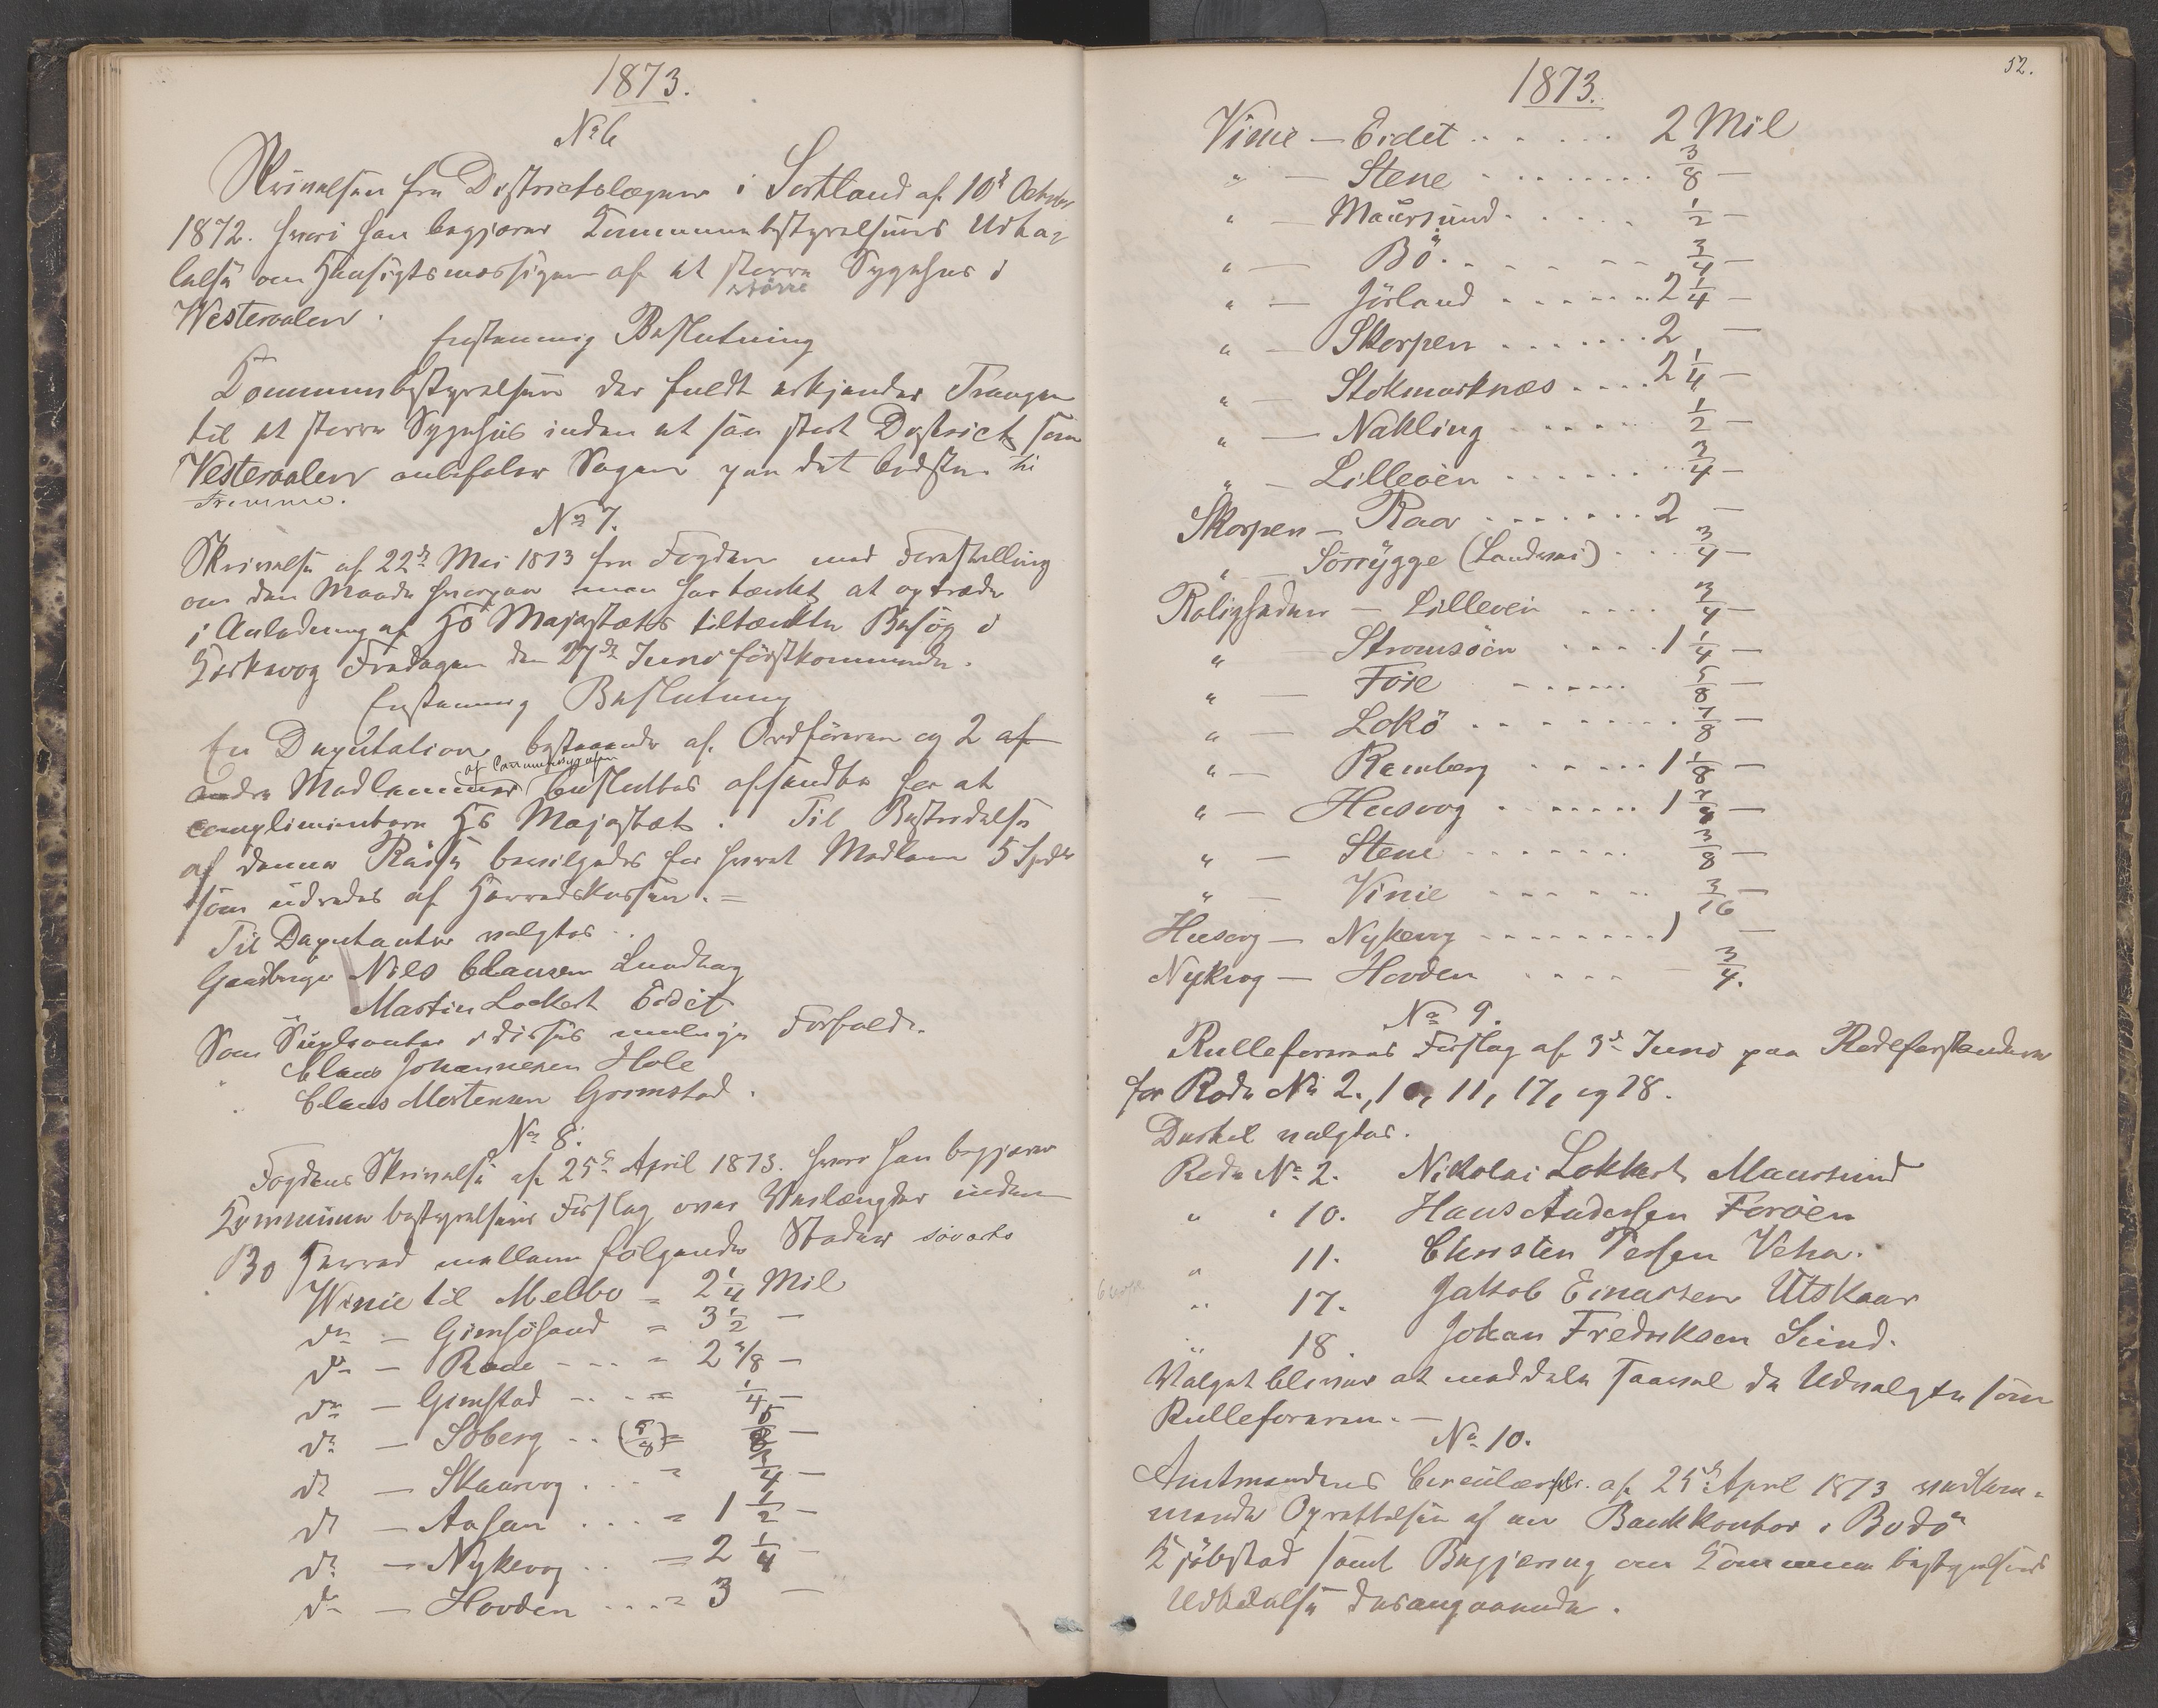 1873.
No 6
Skrivelsen fra Districtslægen i Sortland af 10de October
1872. hvori han begjærer Kommunebestyrelsens Udta-
lelse om Hensigtsmæssigen af et større Sygehus i
større
Westeraalen.
Enstemmig Beslutning
Kommunebestyrelsen der fuldt erkjender Trangen
til et større Sygehus inden et saa stort District som
Vesteraalen anbefaler Sagen paa det bedste til
Fremme.
No 7.
Skrivelse af 22de Mai 1873 fra Fogden med Forestilling
om den Maade hvorpaa man har tænkt at optræde
i Anledning af Hs Majestæts tiltænkte Besøg i
Kirkevog Fredagen den 27de Juni förstkommende.
Enstemmig Beslutning
En Deputation bestaaende af Ordføreren og 2 af
andre Medlemmer besluttes afsendte for at
af Communestyrelsen
complimentere Hs Majestæt. Til Bestridelse
af denne Reise bevilgedes for hvert Medlem 5 Spdlr
som udredes af Herredskassen. =
Til Deputanter valgtes..
Gaardbruger Nils Clausen Lundhag
Martin Lockert Eidet
Som Suplanter i disses mulige Forfald.
" Claus Johannesen Hole
" Claus Mortensen Grimstad.
No 8.
Fogdens Skrivelse af 25de April 1873. hvori han begjærer
Kommune bestyrelsens Forslag over Veilængder inden
Bö Herred mellem følgende Steder söværts
Winie til Melbo = 2 1/4 Mil
do — Gimsösand = 3 1/2 —
do — Raae - - - = 2 1/8 —
do — Gimstad - - - = 1/4 —
do — Soberg - - (5/8) = 5/8 —
do — Skaarvog . . . = 3/4 —
do — Aasan . . . = 1 1/2 —
do — Nykvog . . = 2 1/4 —
do — Hovden . . . . = 3 —
52.
1873.
Vinie — Eidet . . . . . 2 Mil
" — Stene . . . . . . . . 3/8 —
" — Maursund . . . . . 1/2 —
" — Bö . . . . . . . 3/4 —
" — Jörland . . . . . . . 2 1/4 —
" — Skorpen . . . . . . . 2 —
" — Stokmarknæs . . . . 2 1/4 —
" — Nakling . . . . . . 1/2 —
" — Lilleöen . . . . . . . 3/4 —
Skorpen — Raa . . . . . . . 2 —
" — Sörrygge (Landvei) . . . 3/4 —
Roligheden — Lilleöen . . . . 3/4 —
" Stromsöen . . . . 1 1/4 —
" — Föie . . . . . . 5/8 —
" — Lokö . . . . . . . . 7/8 —
" — Ramberg . . . . . 1 1/8 —
" — Husvog . . . . . . 1 —
" — Stene . . . . . . . 3/8 —
" — Vinie . . . . . . . 3/16 —
Husvog — Nykvog . . . . . . . . 1 —
Nykvog — Hovden . . . . — 3/4.
No 9.
Rulleførerens Forslag af 3de Juni paa Rodeforstandere
for Rode No 2., 10, 11, 17, og 18.
Dertil valgtes.
Rode No 2. Nikolai Lokkert Maursund
" " 10. Hans Andersen Foröen
" 11. Christen Persen Veha.
" 17. Jakob Einarsen Utskaar
" 18. Johan Fredriksen Sund.
Valget bliver at meddele saavel de Udvalgte som
Rulleføreren. —
No 10.
Amtmandens Circulærskr. af 25de April 1873 vedkom-
mende Oprettelsen af en Bankkontor i Bodö
Kjöbstad samt Begjering om Kommune bestyrelsens
Udtalelse desangaaende.